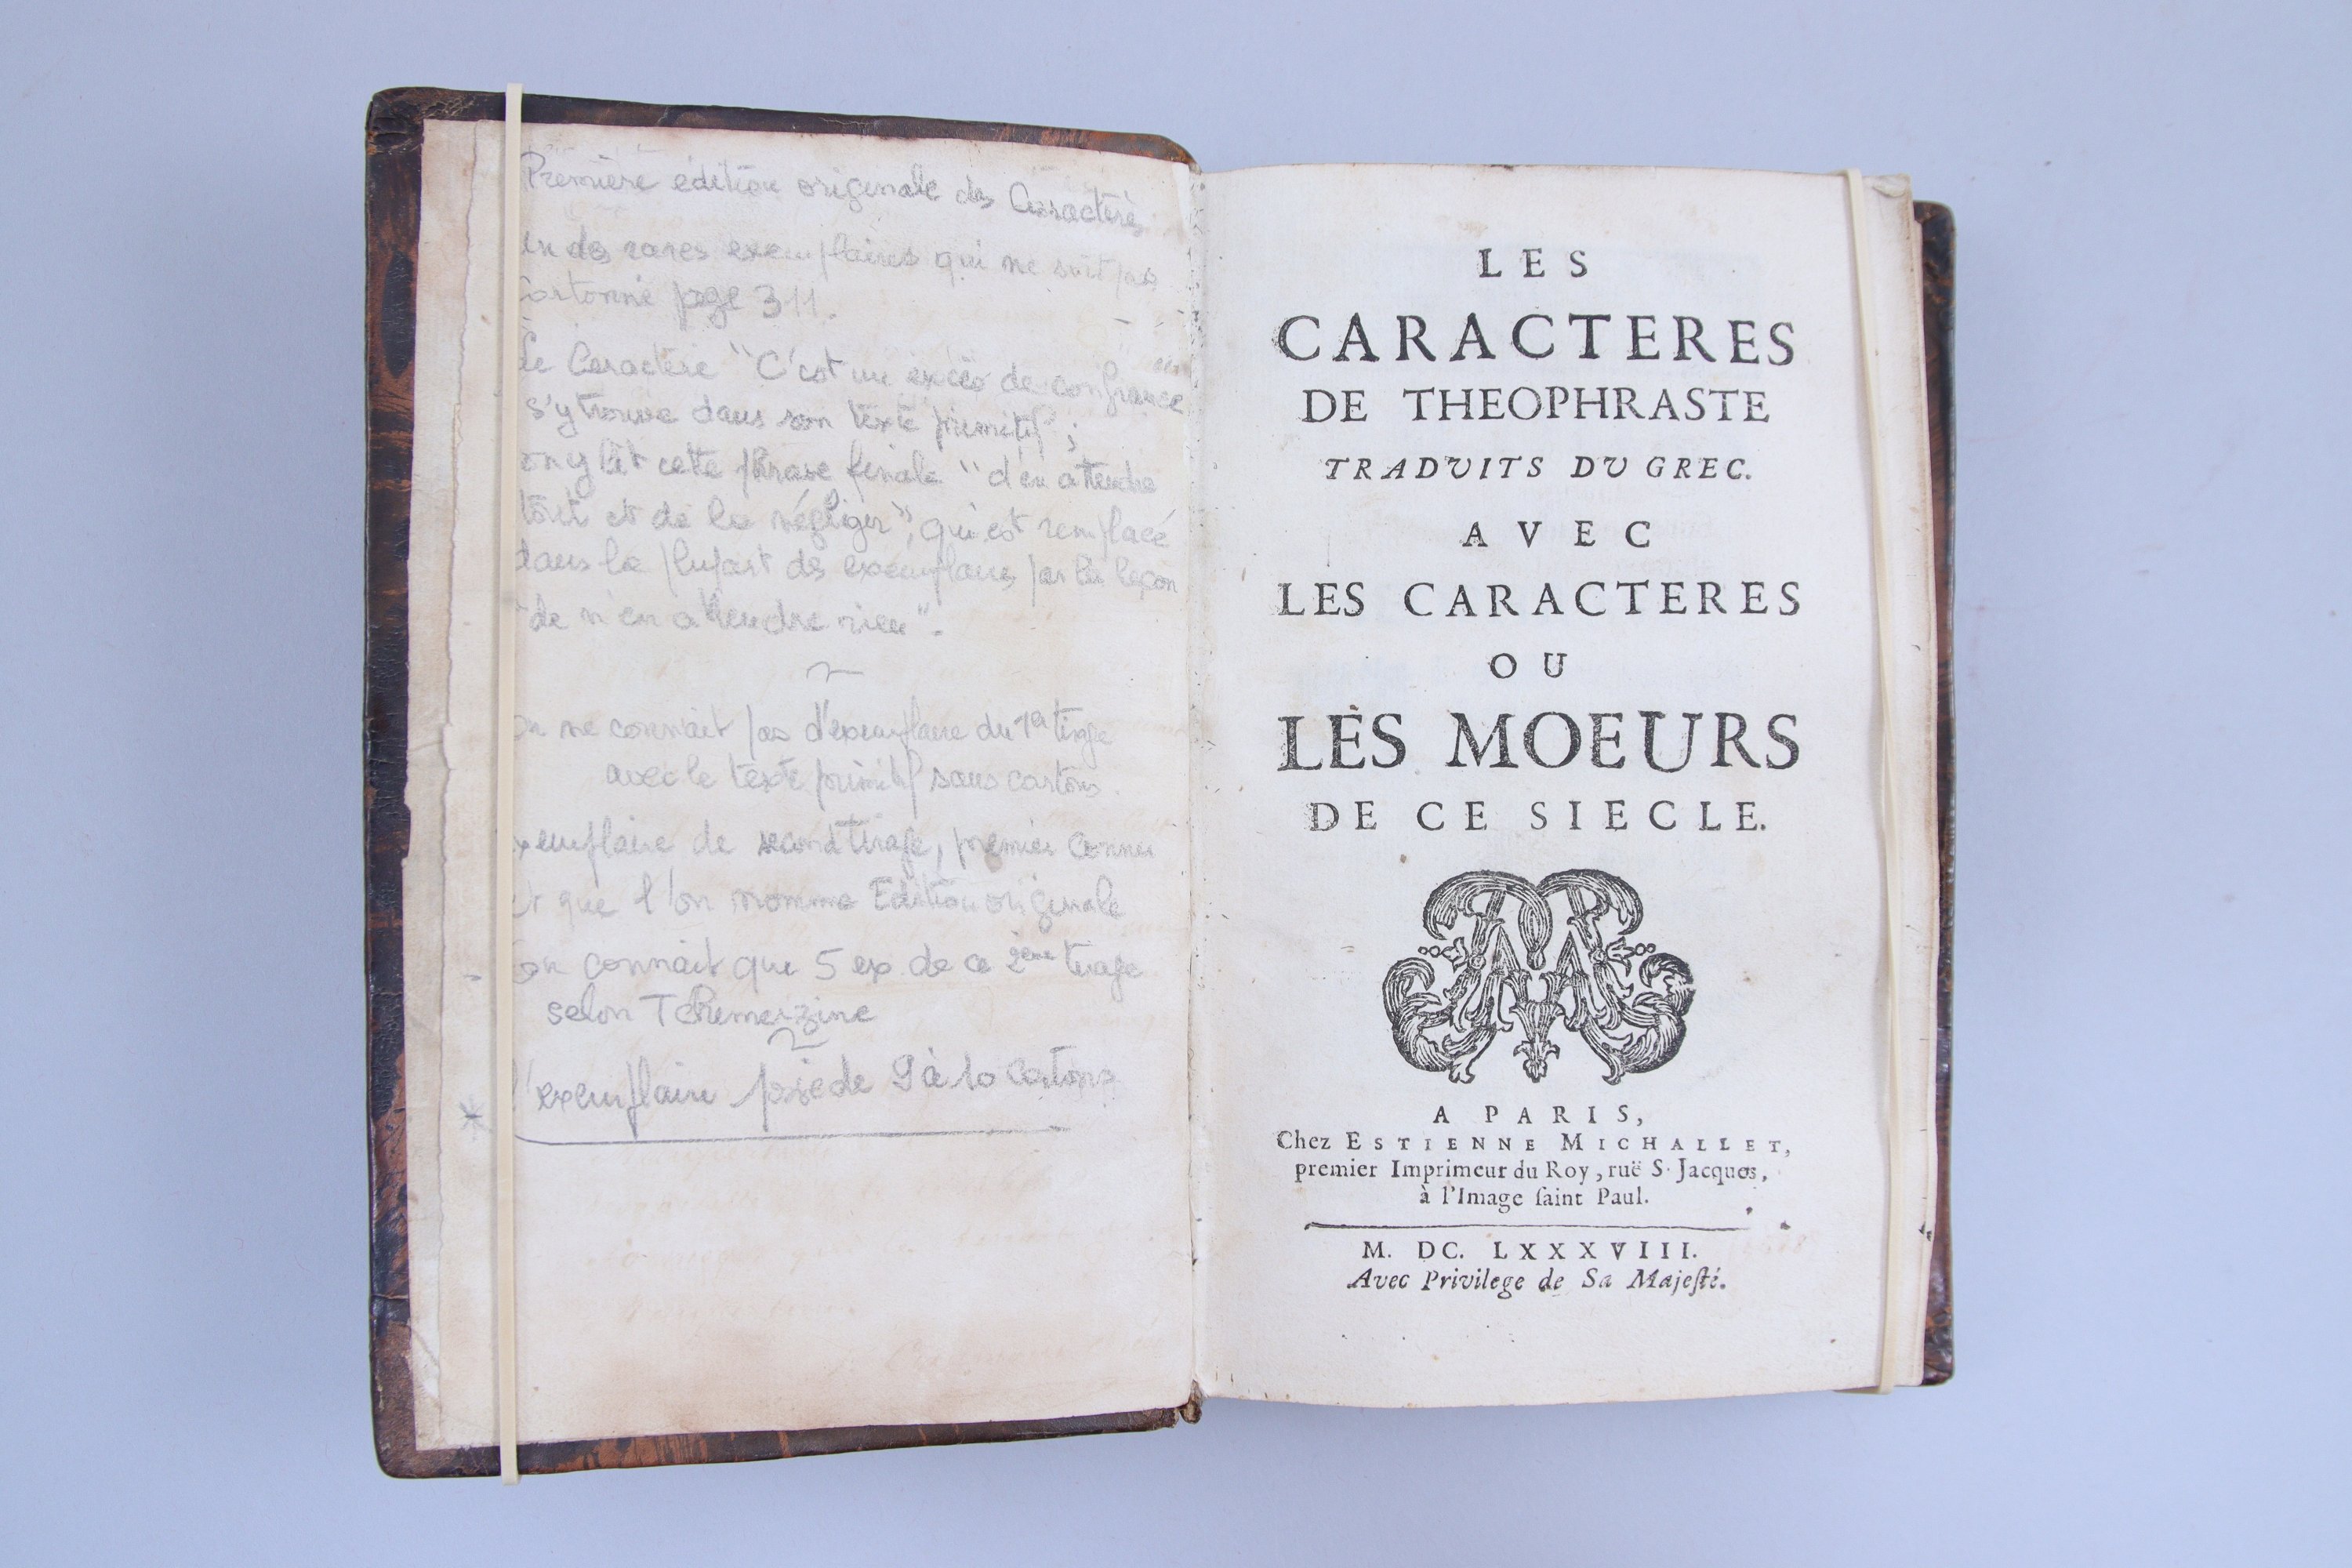 Première édition originale des Caractères
un des rares exemplaires qui ne soit pas
cartonné page 311.
Le Caractère "C'est un excès de confiance
s'y trouve dans son texte primitif ;
on y lit cette phrase finale "d'en attendre
tout et de la négliger", qui est remplacé
dans la plupart des exemplaires par la leçon
"de n'en attendre rien".
on ne connait pas d'exemplaire du 1er tirage
avec le texte primitif sans cartons.
exemplaire de second tirage, premier connu
et que l'on nomme Edition originale
on connait que 5 ex de ce 2ème tirage
selon Tchemerzine
l'exemplaire possède 9 à 10 cartons
LES
CARACTERES
DE THEOPHRASTE
TRADVITS DV GREC.
AVEC
LES CARACTERES
OU
LES MOEURS
DE CE SIECLE.
A PARIS,
Chez ESTIENNE MICHALLET,
premier Imprimeur du Roy, ruë S. Jacques,
à l'Image ſaint Paul.
M. DC. LXXXVIII.
Avec Privilege de Sa Majeſté.